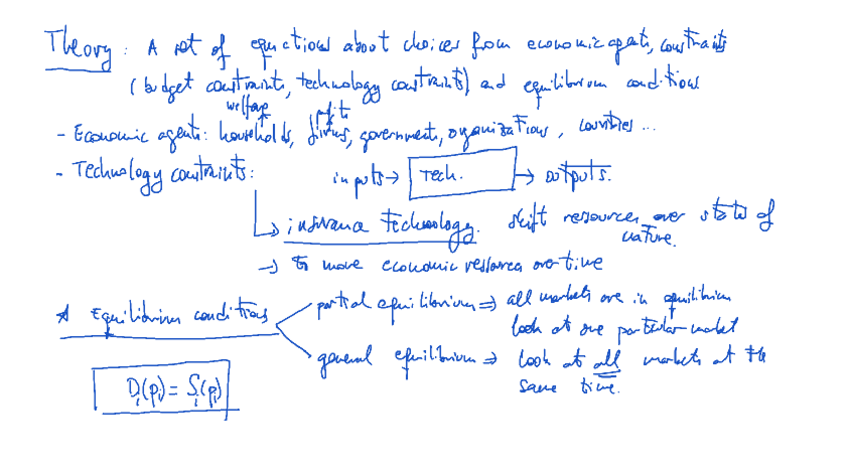 Theory: A set of equations about choices from economic agents, constraints
(budget constraints, technology constraints) and equilibrium conditions
welfare profits
- Economic agents: households, firms, governments, organizations, countries ...
- Technology constraints: inputs → Tech. → outputs.
↳ insurance technology. shift resources over states of
nature.
→ to move economic resources over time
* Equilibrium conditions
partial equilibrium ⇒ all markets are in equilibrium
look at one particular market
general equilibrium ⇒ look at all markets at the
same time.
Di(pi) = Si(pi)